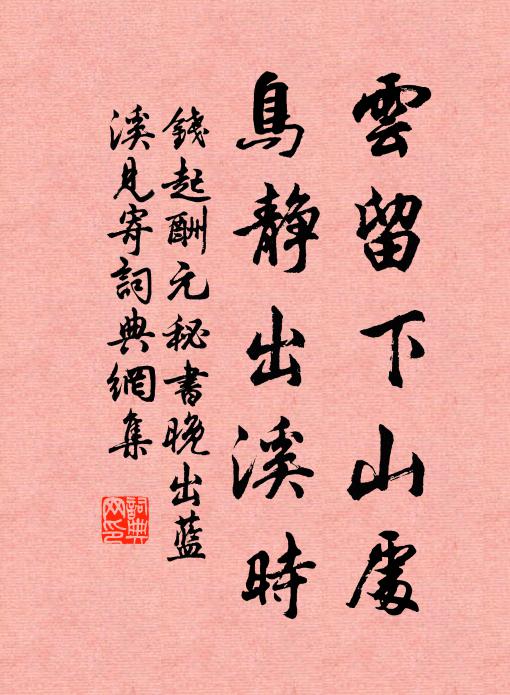 雲留下山處
鳥静出溪時
錢起酬元秘書晚出藍
溪見寄詞典網集
詞典网印